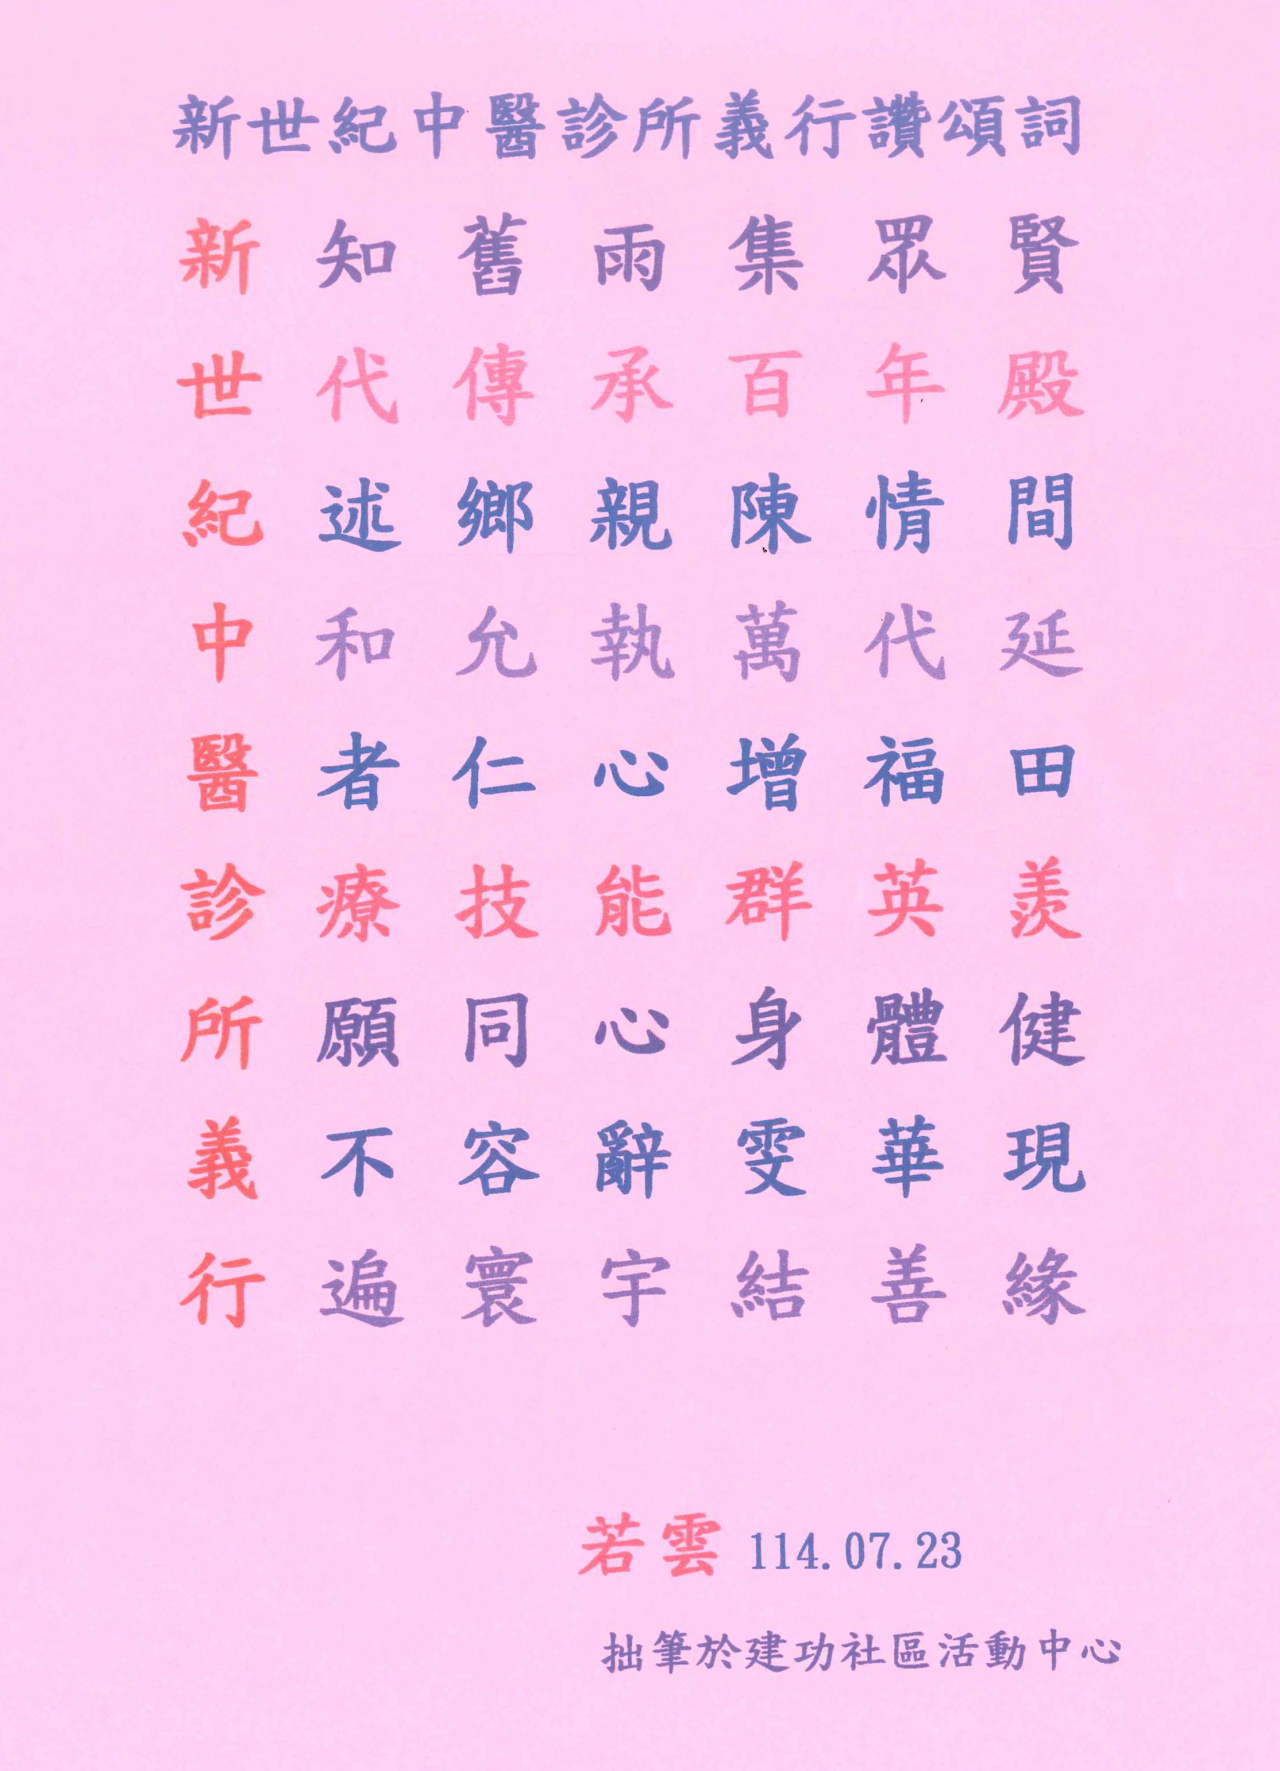 新世紀中醫診所義行讚頌詞
新知舊雨集眾賢
世代傳承百年殿
紀述鄉親陳情間
中和允執萬代延
醫者仁心增福田
診療技能群英羨
所願同心身體健
義不容辭雯華現
行遍寰宇結善緣
若雲 114.07.23
拙筆於建功社區活動中心